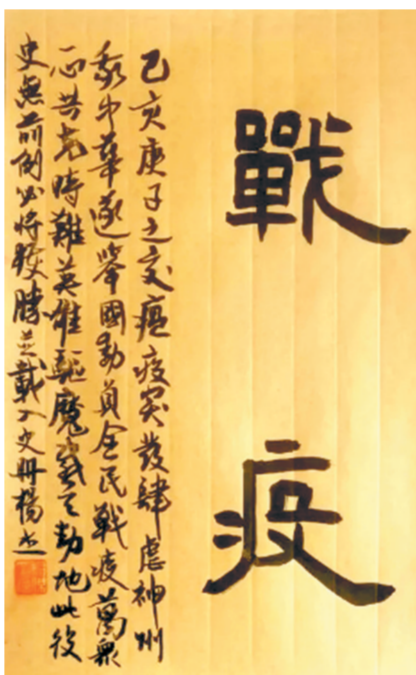 戰疫
己亥庚子之交瘟疫突發肆虐神州
中華遂舉國動員全民戰疫萬眾
一心共克時難英雄驅魔感天動地此役
史無前例必將獲勝並載入史冊楊